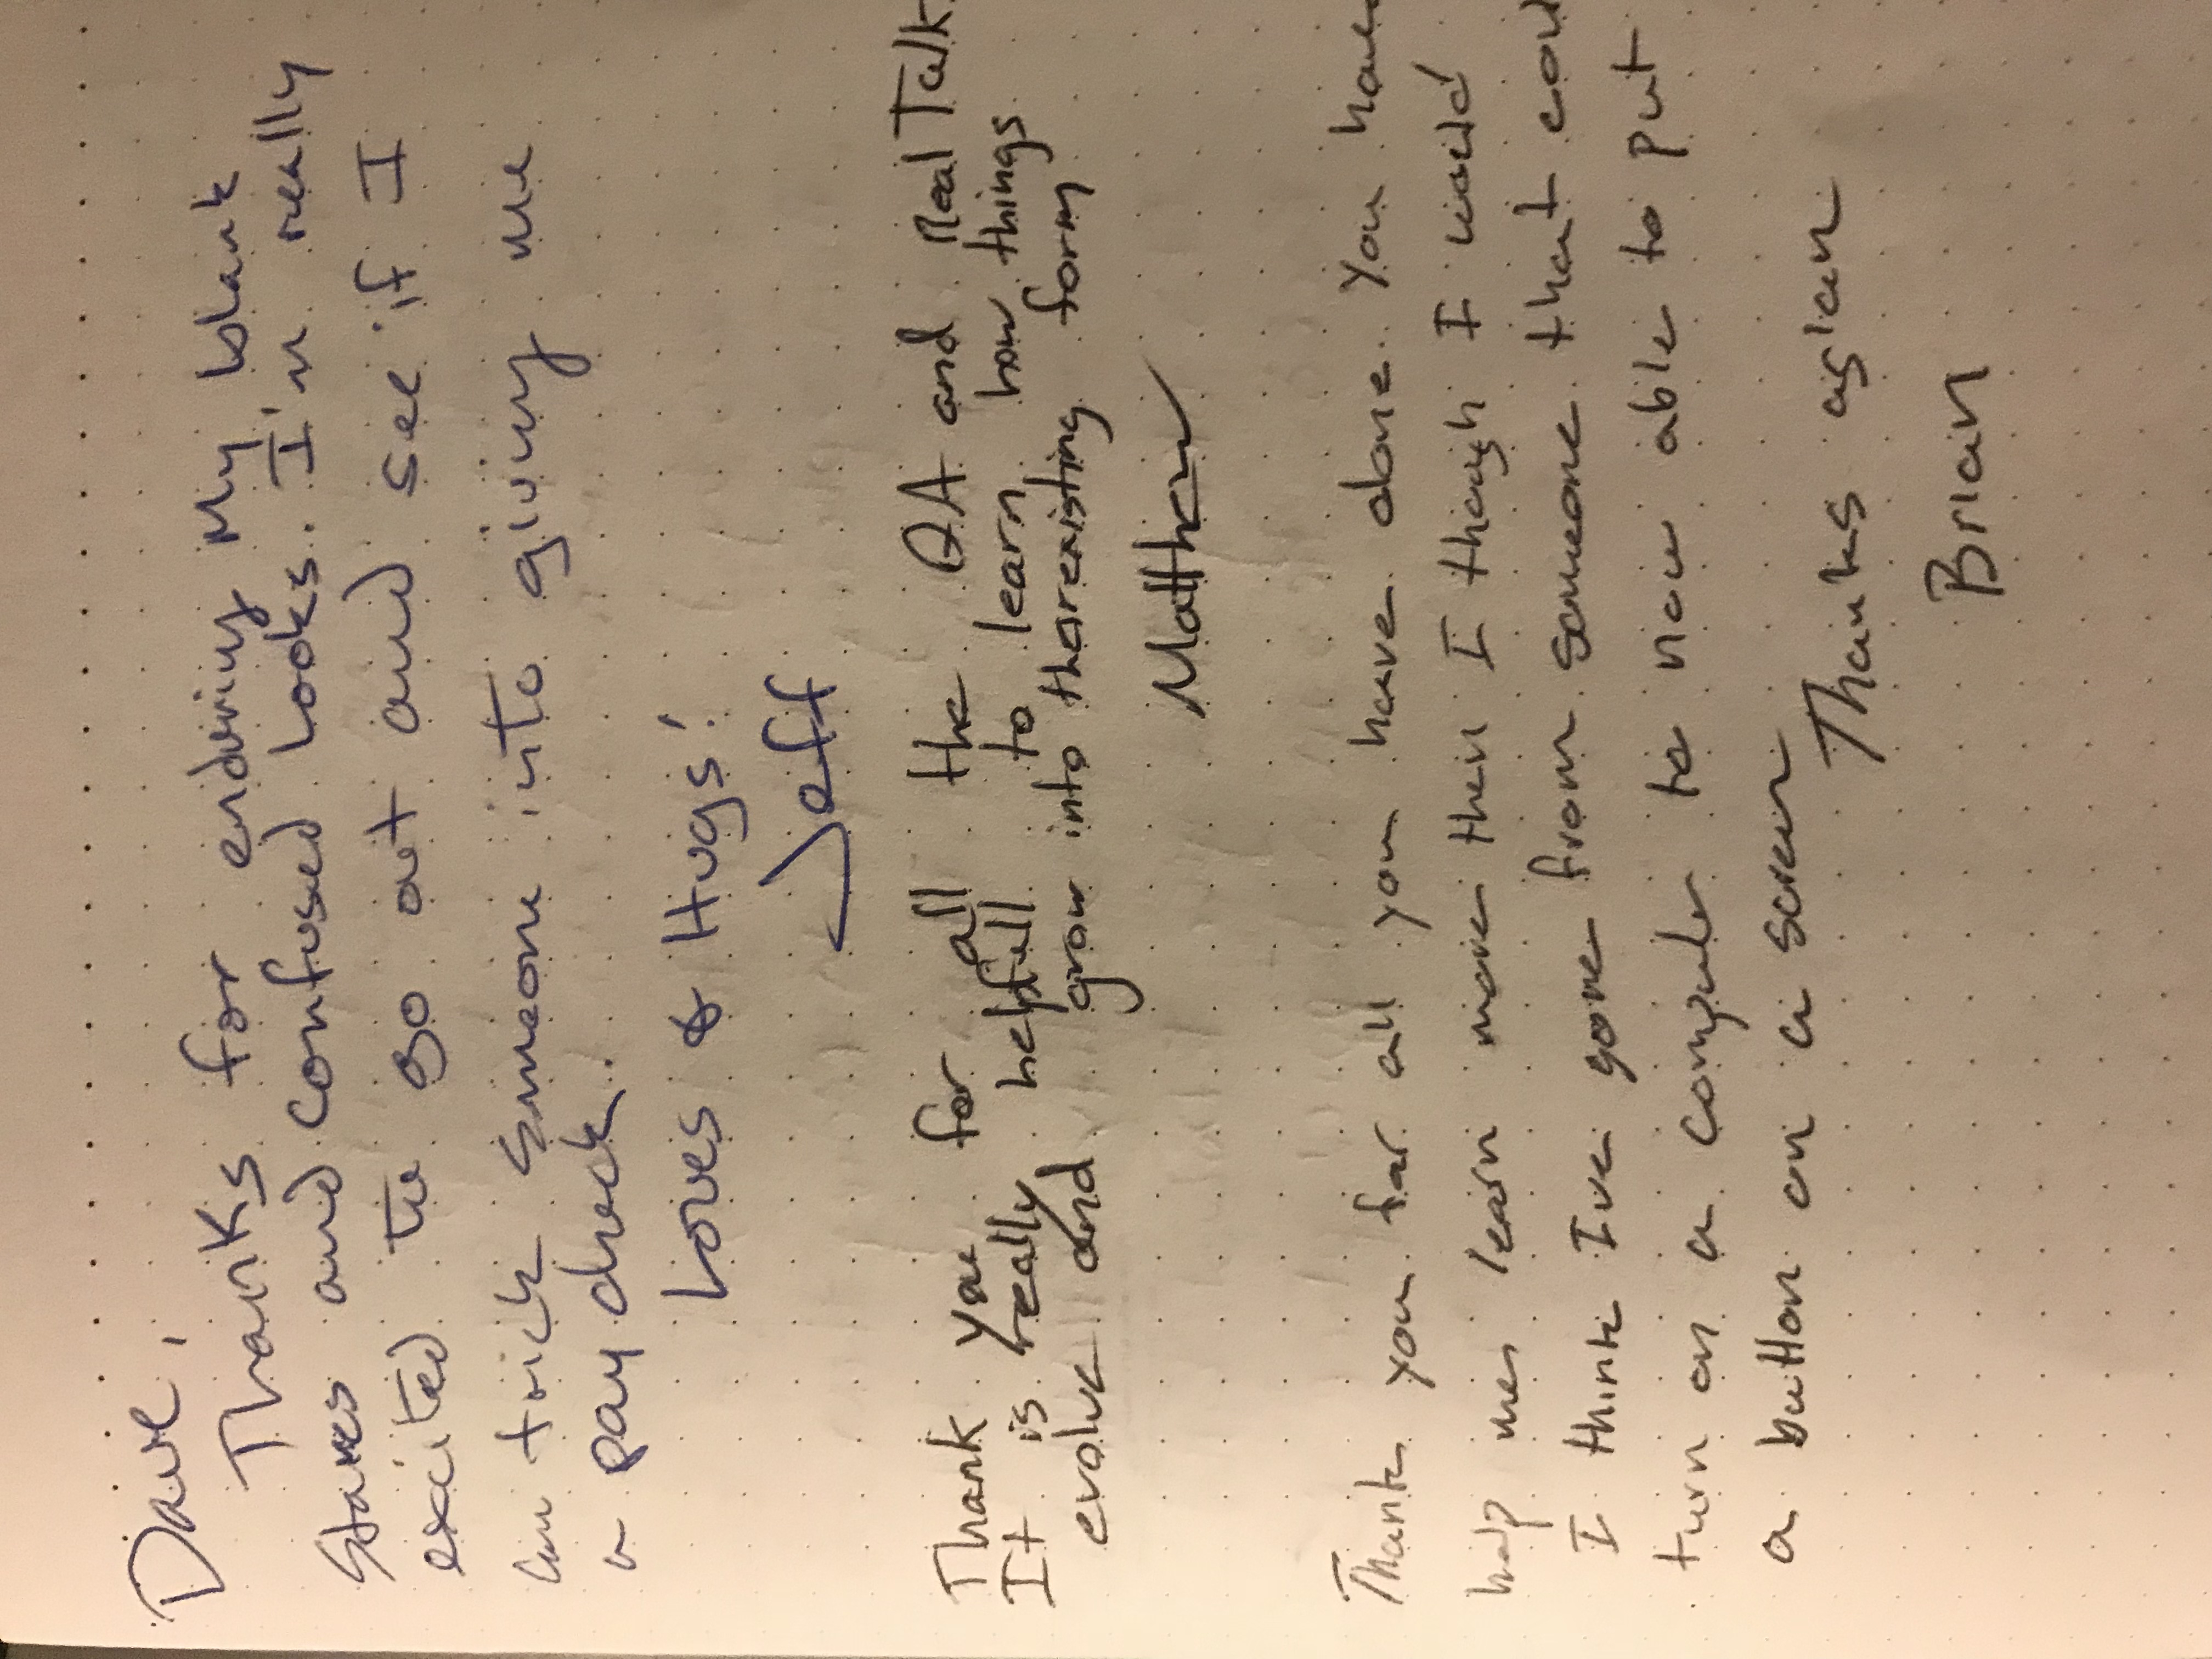 Dave,
Thanks for enduring My blank
stares and confused looks. I'm really
excited to go out and see if I
can trick someone into giving me
a pay check.
Loves & Hugs!
Jeff
Thank you for all the QA and Real Talk.
It is really helpfull to learn how things
evolve and grow into their existing form
Matthew
Thank you for all you have done. You have
help me learn more then I though I would
I think I've gone from someone that coul
turn on a computer to now able to put
a button on a screen
Thanks agian
Brian